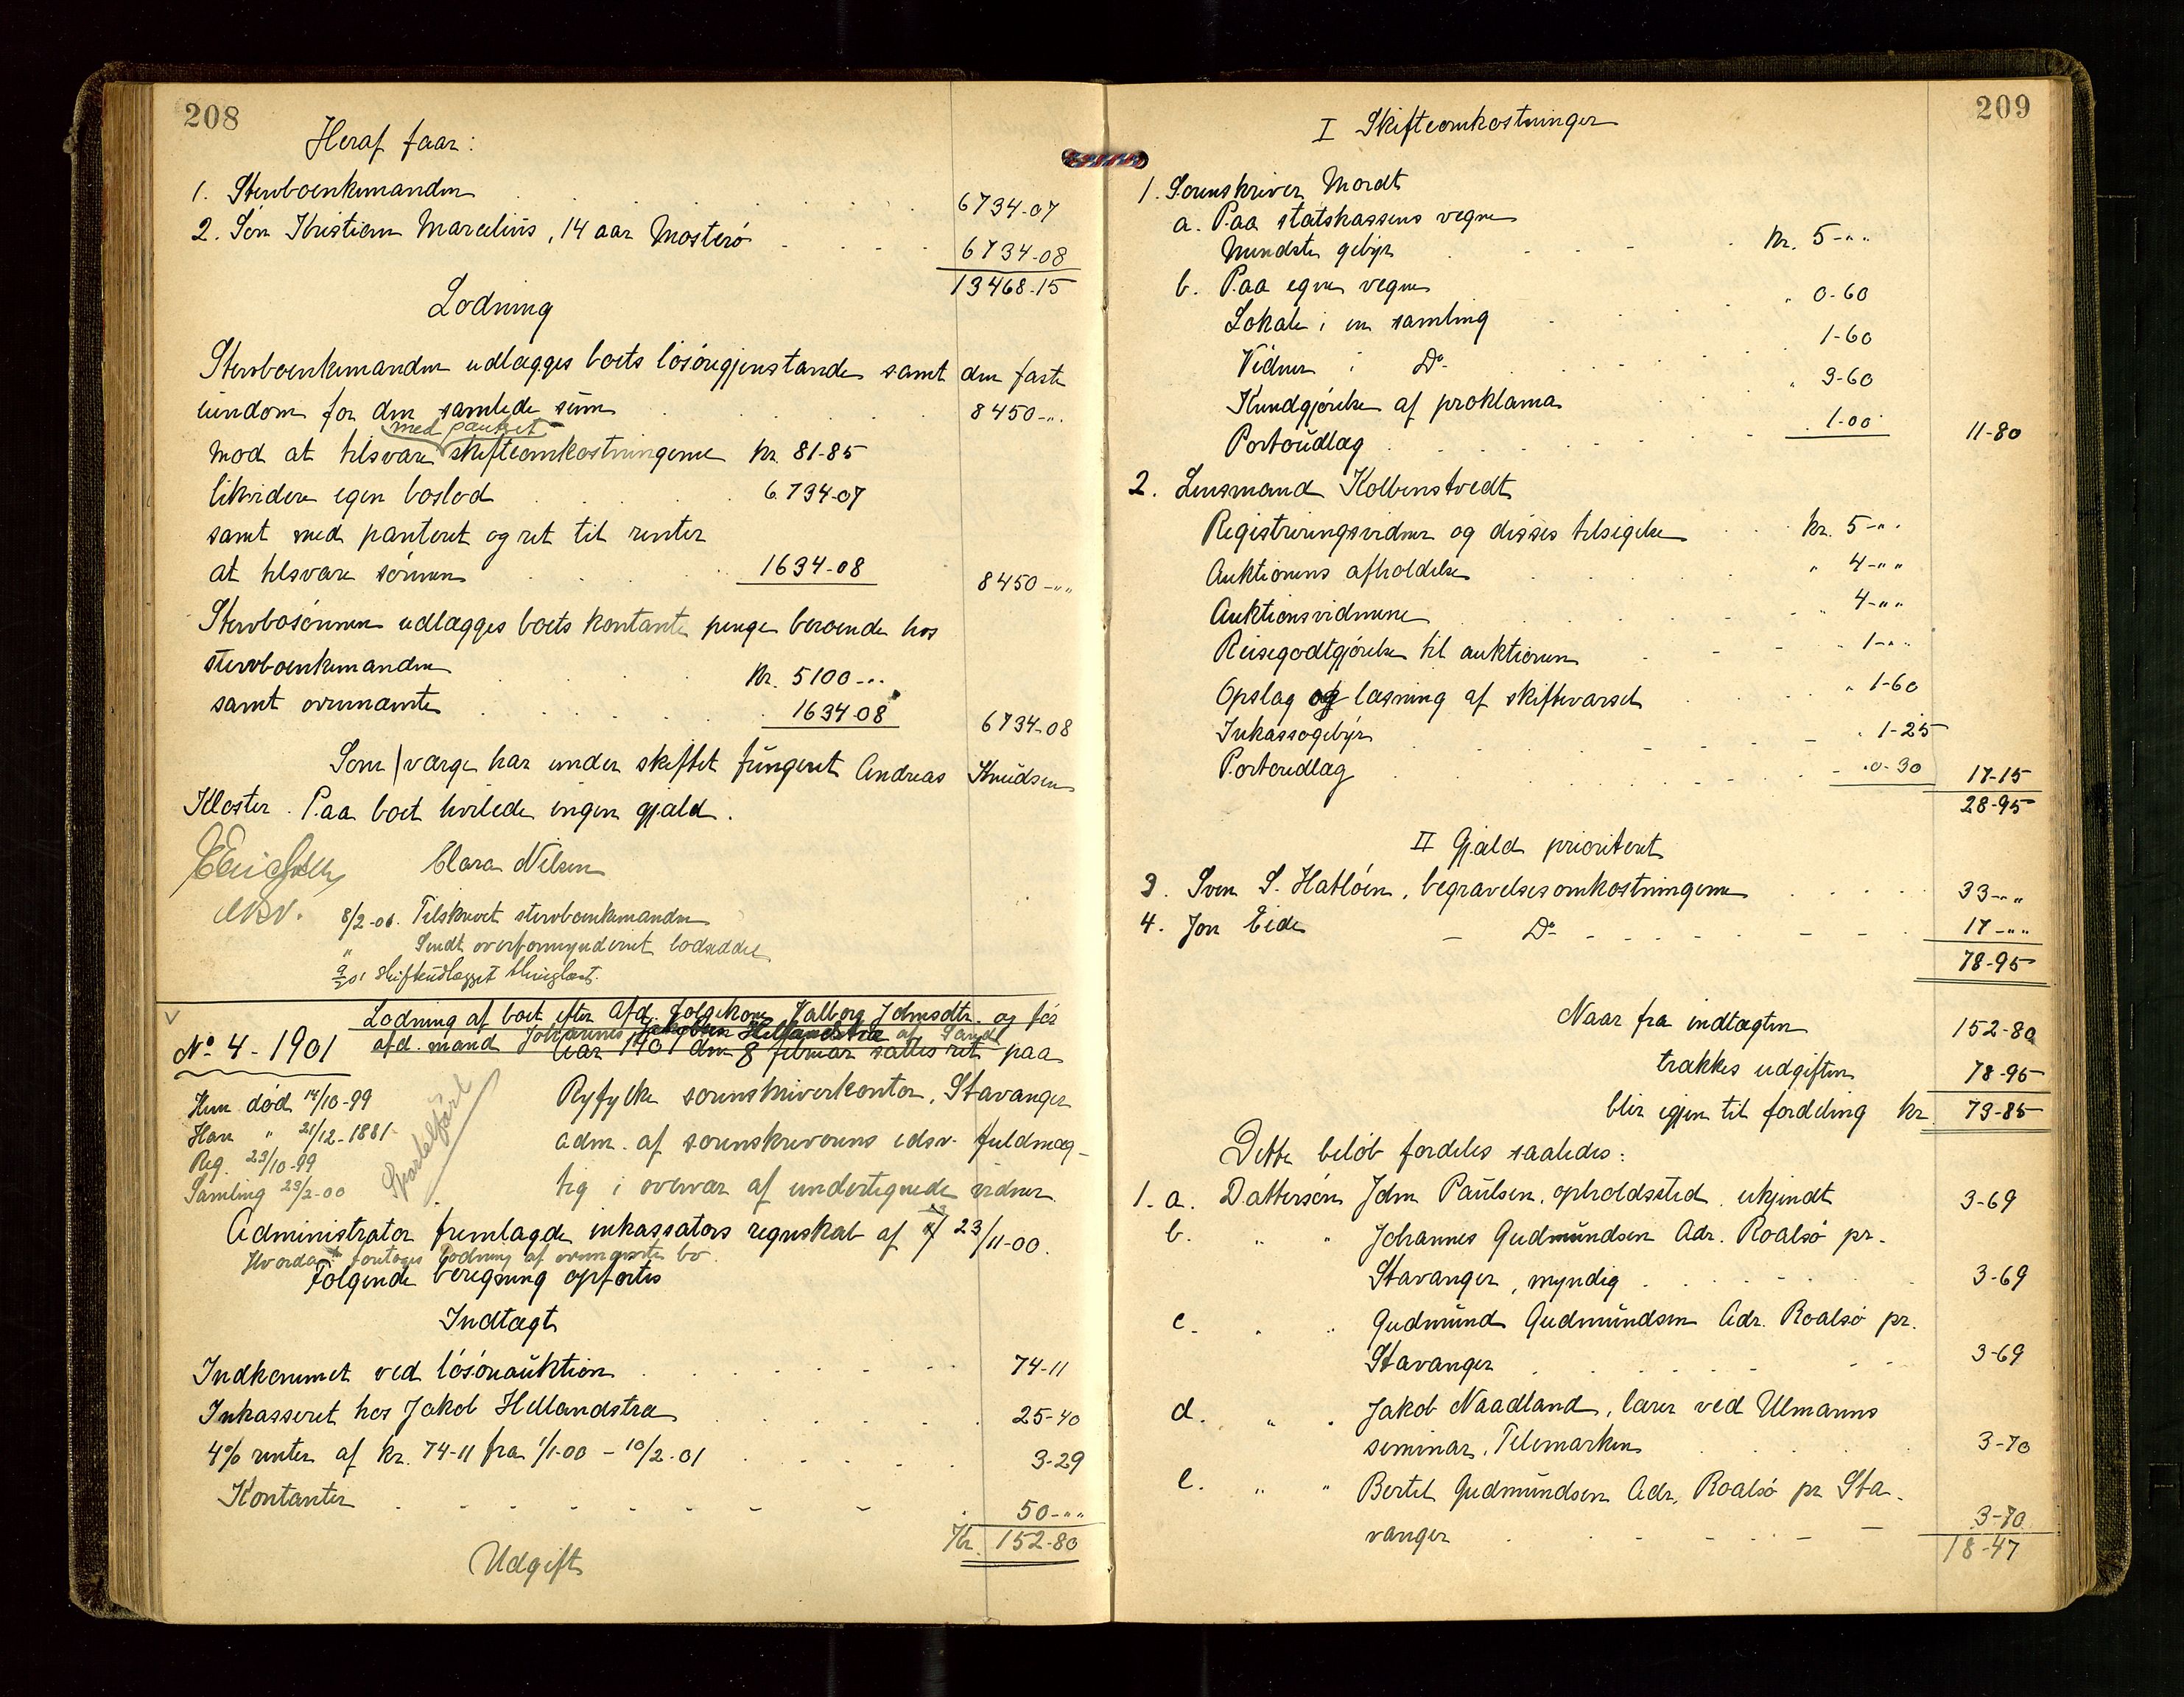 208
Heraf faar:
1. Stervboenkemanden . . . . 6734-07
2. Søn Kristian Marcelius, 14 aar Mosterø . . . . 6734-08
13468-15
Lodning
Stervboenkemanden udlægges boets løsøregjenstande samt den faste
eiendom for den samlede sum . . . . 8450-"
med pantret
mod at tilsvare skifteomkostningerne kr. 81-85
likvidere egen boslod . . . . 6734-07
samt med panteret og ret til renter
at tilsvare sønnen . . . . 1634-08 8450-""
Stervbosønnen udlægges boets kontante penge beroende hos
stervboenkemanden . . . . kr. 5100-"
samt ovennævnte . . . . 1634-08 6734-08
Som værge har under skiftet fungeret Andreas Knudsen
Kloster. Paa boet hvilede ingen gjæld.
Clara Nilsen
edsv.
8/2-01. Tilskrevet stervboenkemanden
" Sendt overformynderiet lodseddel
Skifteudlægget thinglæst.
No 4-1901
Lodning af boet efter Afd. folgekone Valborg Johnsdtr. og før
afd. mand Johannes Jakobsen Hellandstræ af Sand
Aar 1901 den 8 februar sattes ret paa
Hun død 14/10-99
Han " 21/12-1881
Reg. 23/10-99
Samling 23/2-00
Ryfylke sorenskriverkontor, Stavanger
adm. af sorenskriverens edsv. fuldmæg-
tig i overvær af undertegnede vidner
Administrator fremlagde inkassators regnskab af 23/11-00.
Hvorda foretoges Lodning af ovennævnte bo
Følgende beregning opførtes
Indtægt
Indkommet ved løsøreauktion . . . . 74-11
Inkasseret hos Jakob Hellandstræ . . . . 25-40
4% renter af kr. 74-11 fra 1/1-00 - 10/2-01 . . . . 3-29
Kontanter . . . . 50-""
Kr. 152-80
Udgift
209
I Skifteomkostninger
1. Sorenskriver Mordt
a. Paa statskassens vegne
Mindste gebyr . . . . kr. 5-""
b. Paa egne vegne
Lokale i en samling . . . . " 0-60
Vidner i Do . . . . 1-60
Kundgjørelse af proklama " 3-60
Portoudlæg . . . . 1-00 11-80
2. Lensmand Kolbenstvedt
Registreringsvidner og disses tilsigelse . . kr. 5-"
Auktionens afholdelse . . . . " 4-""
Auktionsvidnerne . . . . " 4-""
Reisegodtgjørelse til auktionen . . . . " 1-""
Opslag og læsning af skiftevarsel . . . . " 1-60
Inkassogebyr . . . . " 1-25
Portoudlæg . . . . 0-30 17-15
28-95
II Gjæld prioriteret
3. Sven S. Hatløen, begravelsesomkostningerne . . . . 33-""
4. Jon Eide - Do - . . . . 17-""
78-95
Naar fra indtægten 152-80
trækkes udgiften 78-95
blir igjen til fordeling kr. 73-85
Dette beløb fordeles saaledes:
1. a. Dattersøn John Paulsen, opholdssted ukjendt 3-69
b. " " Johannes Gudmundsen Adr. Roalsø pr.
Stavanger, myndig . . . . 3-69
c. " " Gudmund Gudmundsen Adr. Roalsø pr.
Stavanger . . . . 3-69
d. " " Jakob Naadland, lærer ved Ulmanns
seminar, Telemarken . . . . 3-70
e. " " Bertel Gudmundsen Adr. Roalsø pr Sta-
vanger . . . . 3-70
18-47